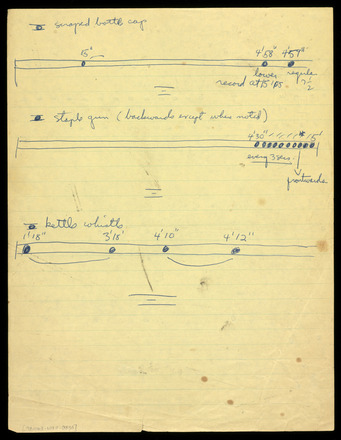 scraped bottle cap
15"
4'58" 4'59"
lower
record at 15 ips
regular
7 1/2
staple gun (backwards except when noted)
4'30"
* 5'
every 3 secs
frontwards
kettle whistle
1'18" 3'18" 4'10" 4'12"